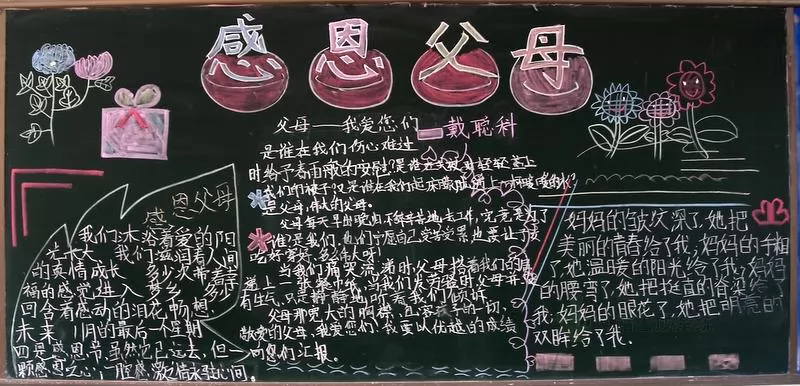 感恩父母
父母——我爱您们
戴聪科
是谁在我们伤心难过
时给予着雨散的安慰是谁在
我们的被子又是谁在我们起床
是父母,伟大的父母。
父母每天早出晚归不辞辛劳地去工作,究竟是为了
谁!是我们,他们宁愿自己受苦受累也要让子女
吃好穿好,多么伟人呀!
当我们痛哭流涕时父母搭着我们的肩
递上一张餐巾纸,当我们发着脾时父母并没
有生气,只是静静地听着我们倾诉
父母那宽大的胸襟,宽容孩子的一切,
敬爱的父母,我爱您们,我要以优越的成绩
向您们汇报。
感恩父母
我们沐浴着爱的阳
光长大,我们滋润着人间
的真情成长,多少次带着幸
福的感觉进入梦乡,多少
回含着感动的泪花畅想
未来,11月的最后一个星期
四是感恩节,虽然它已远去,但一
颗感恩之心,一腔感激之情永驻心间。
妈妈的皱纹深了,她把
美丽的青春给了我;妈妈的手粗
了,她温暖的阳光给了我;妈妈
的腰弯了,她把挺直的脊梁给了
我;妈妈的眼花了,她把明亮的
双眸给了我.